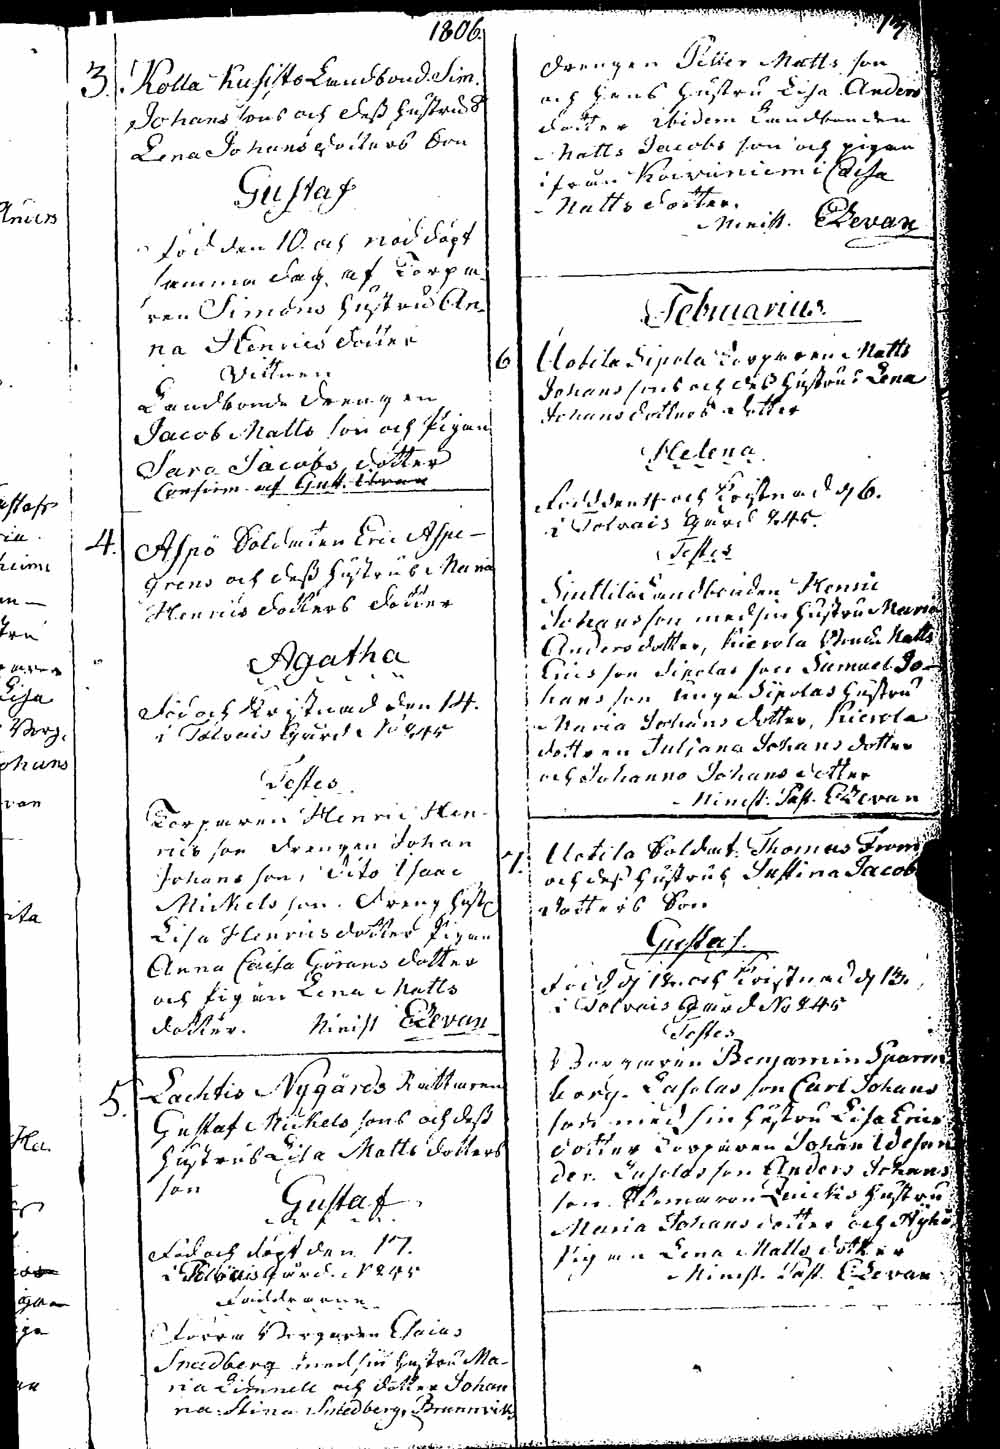 1806.
3. Kolla Kusisto Landbond. Sim.
Johans sons och deß hustrus
Lena Johans dotters Son
Gustaf
född den 10. och nöddöpt
samma dag af Torpa-
ren Simons hustru An-
na Henrics dotter
Vittnen
Landbonde drengen
Jacob Matts son och Pigan
Sara Jacobs dotter
Confirm. af Gust.
4. Aspö Soldaten Eric Aspe-
grens och deß hustrus Maria
Henrics dotters dotter
Agatha
Född och Kristnad den 14.
i Tolvais gård No 245
Testes
Torparen Henric Hen-
rics son drengen Johan
Johans son, Dito Isaac
Mickels son. Dreng hust.
Lisa Henrics dotter Pigan
Anna Caisa Görans dotter
och Pigan Lena Matts
dotter. Minist
5. Lachtis Nygårds Rattaren
Gustaf Mickels sons och deß
hustrus Lisa Matts dotters
son
Gustaf
Född och döpt den 17.
i Tolvais gård. N 245
Faddrarne
Förra Borgaren Elaias
Snedberg med sin hustru Ma-
ria Limnell och dotter Johan
na Stina Snedberg,
drengen Petter Matts son
och hans hustru Lisa Anders
dotter ibidem Landbonden
Matts Jacobs son och pigan
ifrån Koivuniemi Caisa
Matts dotter.
Minist.
Februarius.
6 Uotila Sipola Torparen Matts
Johans sons och deß hustrus Lena
Johans dotters dotter
Helena.
Född den 4 och Kristnad d 6.
i Tolvais gård 245.
Testes
Landbonden Henric
Johans son med sin hustru Maria
Anders dotter, Kierola Matts
Erics son Sipolas son Samuel Jo-
hans son unga Sipolas hustru
Maria Johans dotter, Kierola
dottren Juliana Johans dotter
och Johanna Johans dotter
Minist. Past.
7. Uotila Soldat. Thomas From
och deß hustrus Justina Jacob
dotters Son
Gustaf.
Född d 12. och Kristnad d 13.
i Tolvais Gård No 245
Testes
Borgaren Benjamin Sparn
berg. son Carl Johans
son med sin hustru Lisa Erics
dotter Torparen Johan
der. son Anders Johans
son. hustru
Maria Johans dotter och
Pigan Lena Matts dotter
Minist. Past.